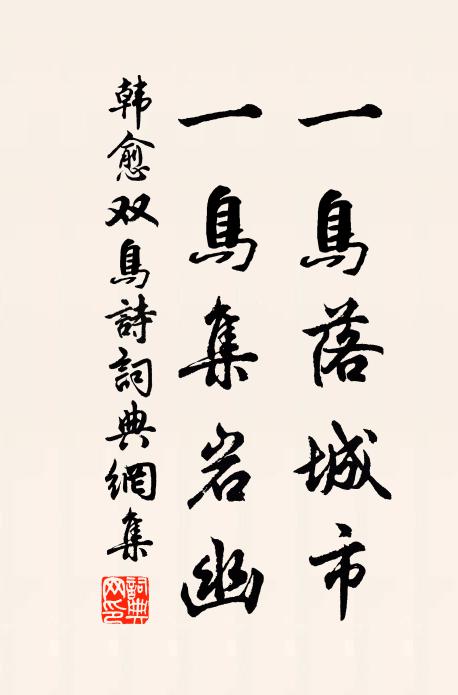 一鳥落城市
一鳥集岩幽
韩愈双鳥詩詞典網集
詞典网印